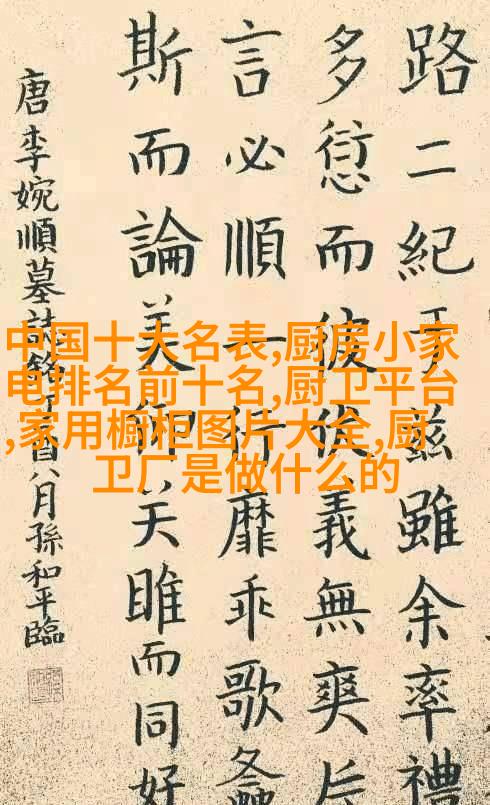 路二紀于兹雖余率禮
多愆而彼俟義無爽
言必順一行靡乖歌
斯而論美关雎而同好
唐李婉順墓誌銘酉八月孫和平臨
中国十大名表,厨房小家
电排名前十名,厨卫平台
,家用橱柜图片大全,厨
卫厂是做什么的